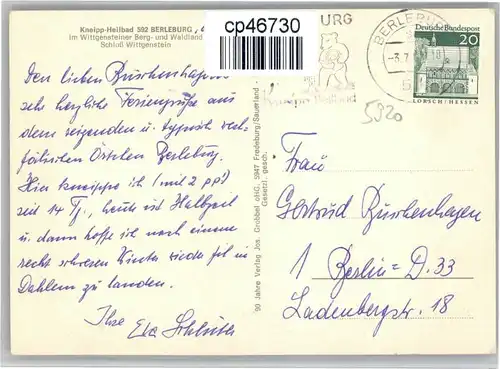 Kneipp-Heilbad 592 BERLEBURG
im Wittgensteiner Berg- und Waldland
Schloß Wittgenstein
cp46730
BURG
BERLEBURG
-3.7.
Deutsche Bundespost
20
LORSCH/HESSEN
5920
Den lieben Buschenhagens
sehr herzliche Feriengrüße aus
dem reizenden u. typisch west-
fälischen Örtchen Berleburg.
Hier kneippe ich (mit 2 pp!)
seit 14 Tg., heute ist Halbzeit
u. dann hoffe ich nach einem
recht schweren Winter wieder fit in
Dahlem zu landen.
Ihre Eva Schlüter
90 Jahre Verlag Jos. Grobbel oHG. 5947 Fredeburg/Sauerland
Gesetzl. gesch.
Frau
Gertrud Buschenhagen
1 Berlin=D. 33
Ladenbergstr. 18